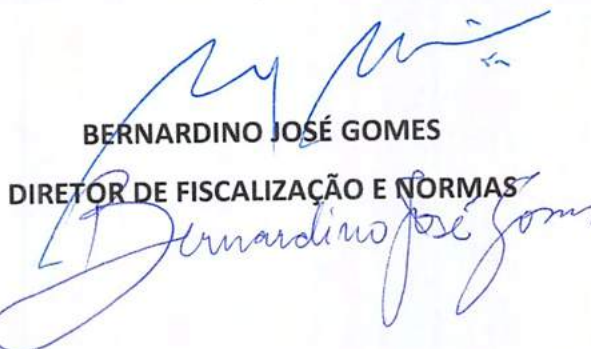 BERNARDINO JOSÉ GOMES
DIRETOR DE FISCALIZAÇÃO E NORMAS
Bernardino José Gomes